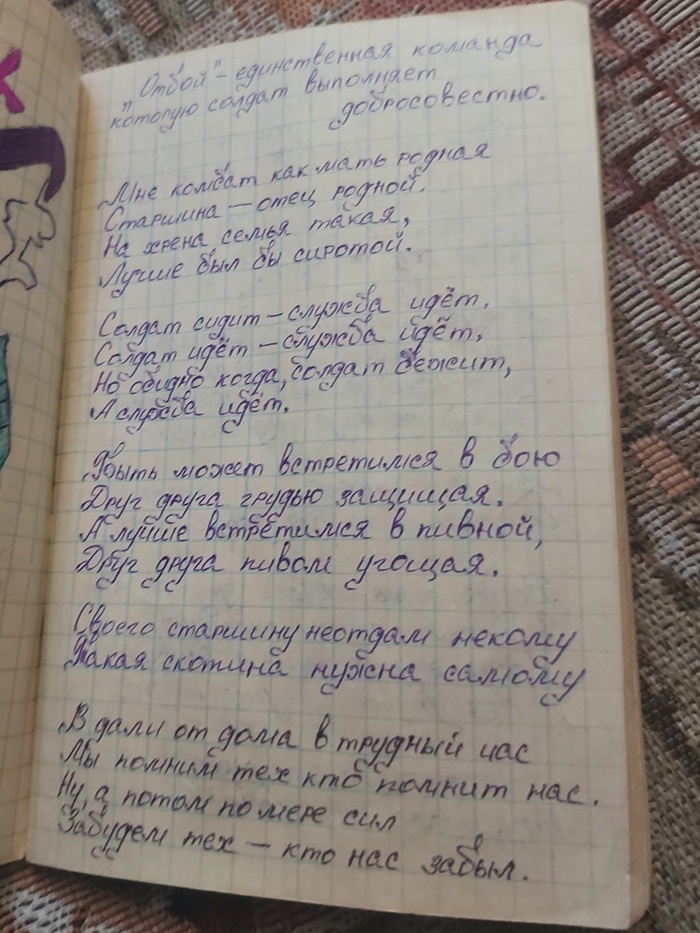 "Отбой" - единственная команда
которую солдат выполняет
добросовестно.
Мне комбат как мать родная
Старшина — отец родной.
На хрена семья такая,
Лучше был бы сиротой.
Солдат сидит — служба идёт,
Солдат идёт — служба идёт,
Но обидно когда, солдат бежит,
А служба идёт.
Быть может встретимся в бою
Друг друга грудью защищая.
А лучше встретимся в пивной,
Друг друга пивом угощая.
Своего старшину неотдам некому
Такая скотина нужна самому
В дали от дома в трудный час
Мы помним тех кто помнит нас.
Ну, а потом по мере сил
Забудем тех — кто нас забыл.